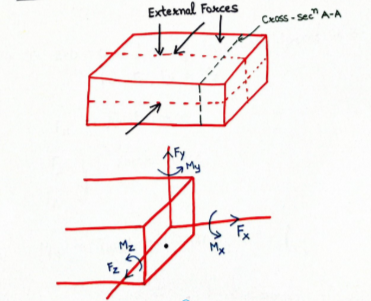 External Forces
Cross-secⁿ A-A
Fy
My
Fx
Mx
Mz
Fz